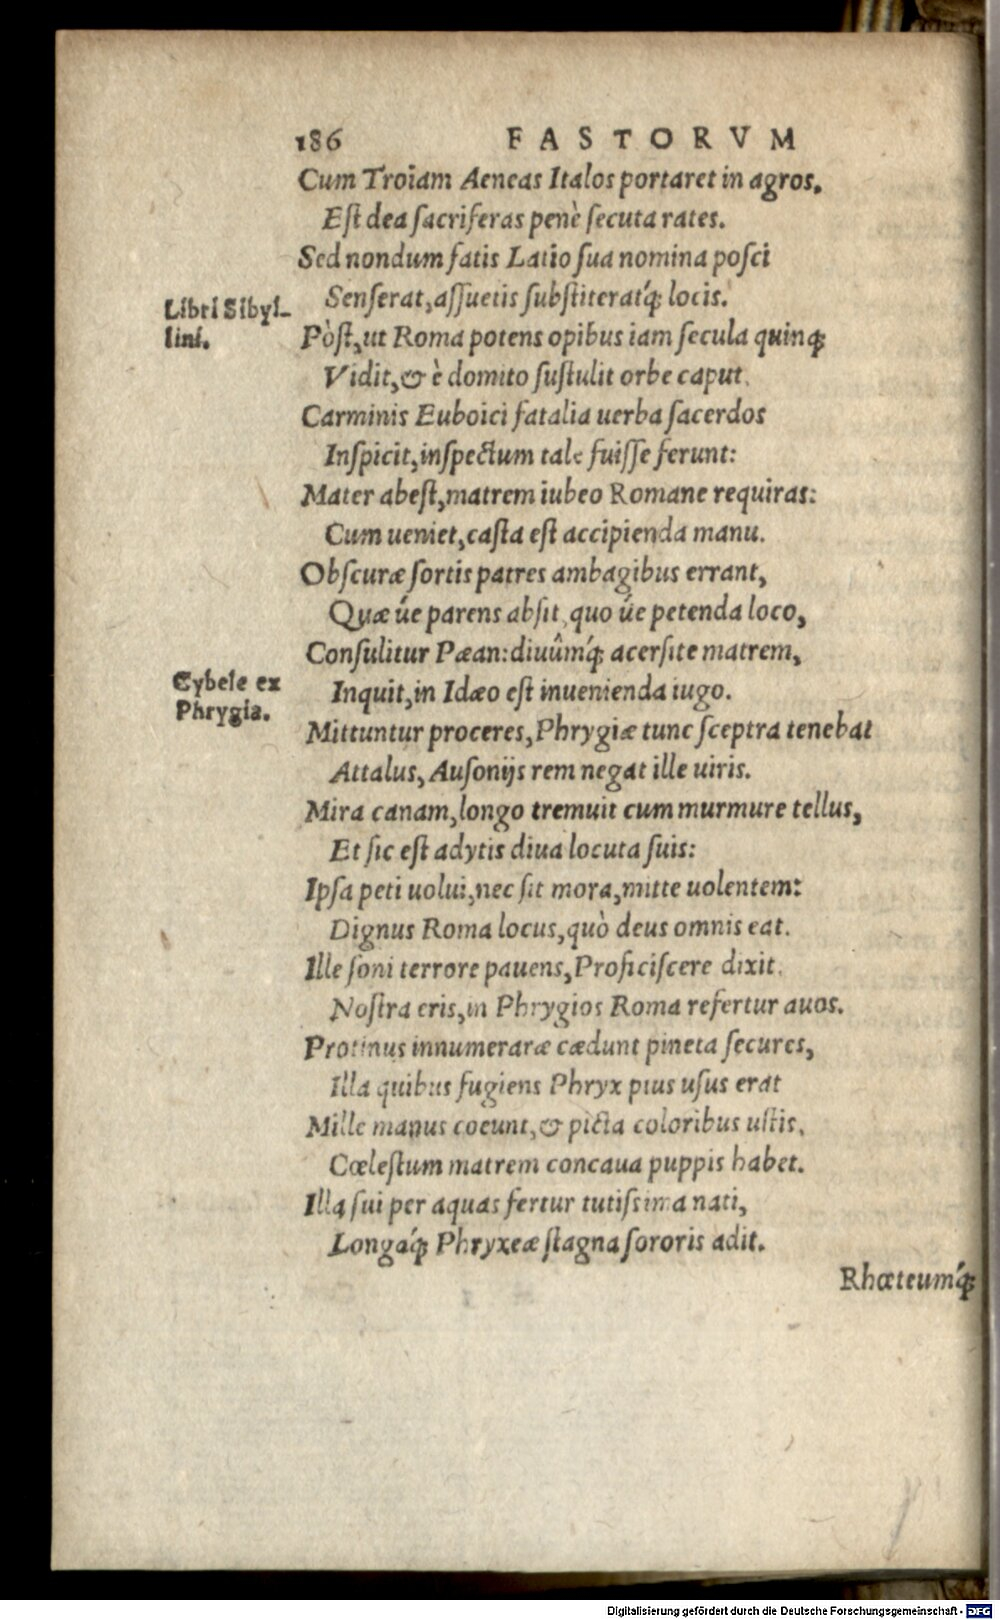 186 FASTORVM
Cum Troiam Aeneas Italos portaret in agros.
Est dea sacriferas penè secuta rates.
Sed nondum fatis Latio sua nomina posci
Senserat, assuetis substiteratq́; locis.
Libri Sibyl-
lini.
Pòst, ut Roma potens opibus iam secula quinq;
Vidit, & è domito sustulit orbe caput.
Carminis Euboici fatalia uerba sacerdos
Inspicit, inspectum tale fuisse ferunt:
Mater abest, matrem iubeo Romane requiras:
Cum ueniet, casta est accipienda manu.
Obscuræ sortis patres ambagibus errant,
Quæ úe parens absit, quo úe petenda loco,
Consulitur Pæan: diuûmq́; acersite matrem,
Cybele ex
Phrygia.
Inquit, in Idæo est inuenienda iugo.
Mittuntur proceres, Phrygiæ tunc sceptra tenebat
Attalus, Ausonijs rem negat ille uiris.
Mira canam, longo tremuit cum murmure tellus,
Et sic est adytis diua locuta suis:
Ipsa peti uolui, nec sit mora, mitte uolentem:
Dignus Roma locus, quò deus omnis eat.
Ille soni terrore pauens, Proficiscere dixit.
Nostra eris, in Phrygios Roma refertur auos.
Protinus innumeraræ cædunt pineta secures,
Illa quibus fugiens Phryx pius usus erat
Mille manus coeunt, & picta coloribus ustis.
Cœlestum matrem concaua puppis habet.
Illa sui per aquas fertur tutissima nati,
Longaq́; Phryxeæ stagna sororis adit.
Rhœteumq́;
Digitalisierung gefördert durch die Deutsche Forschungsgemeinschaft - DFG